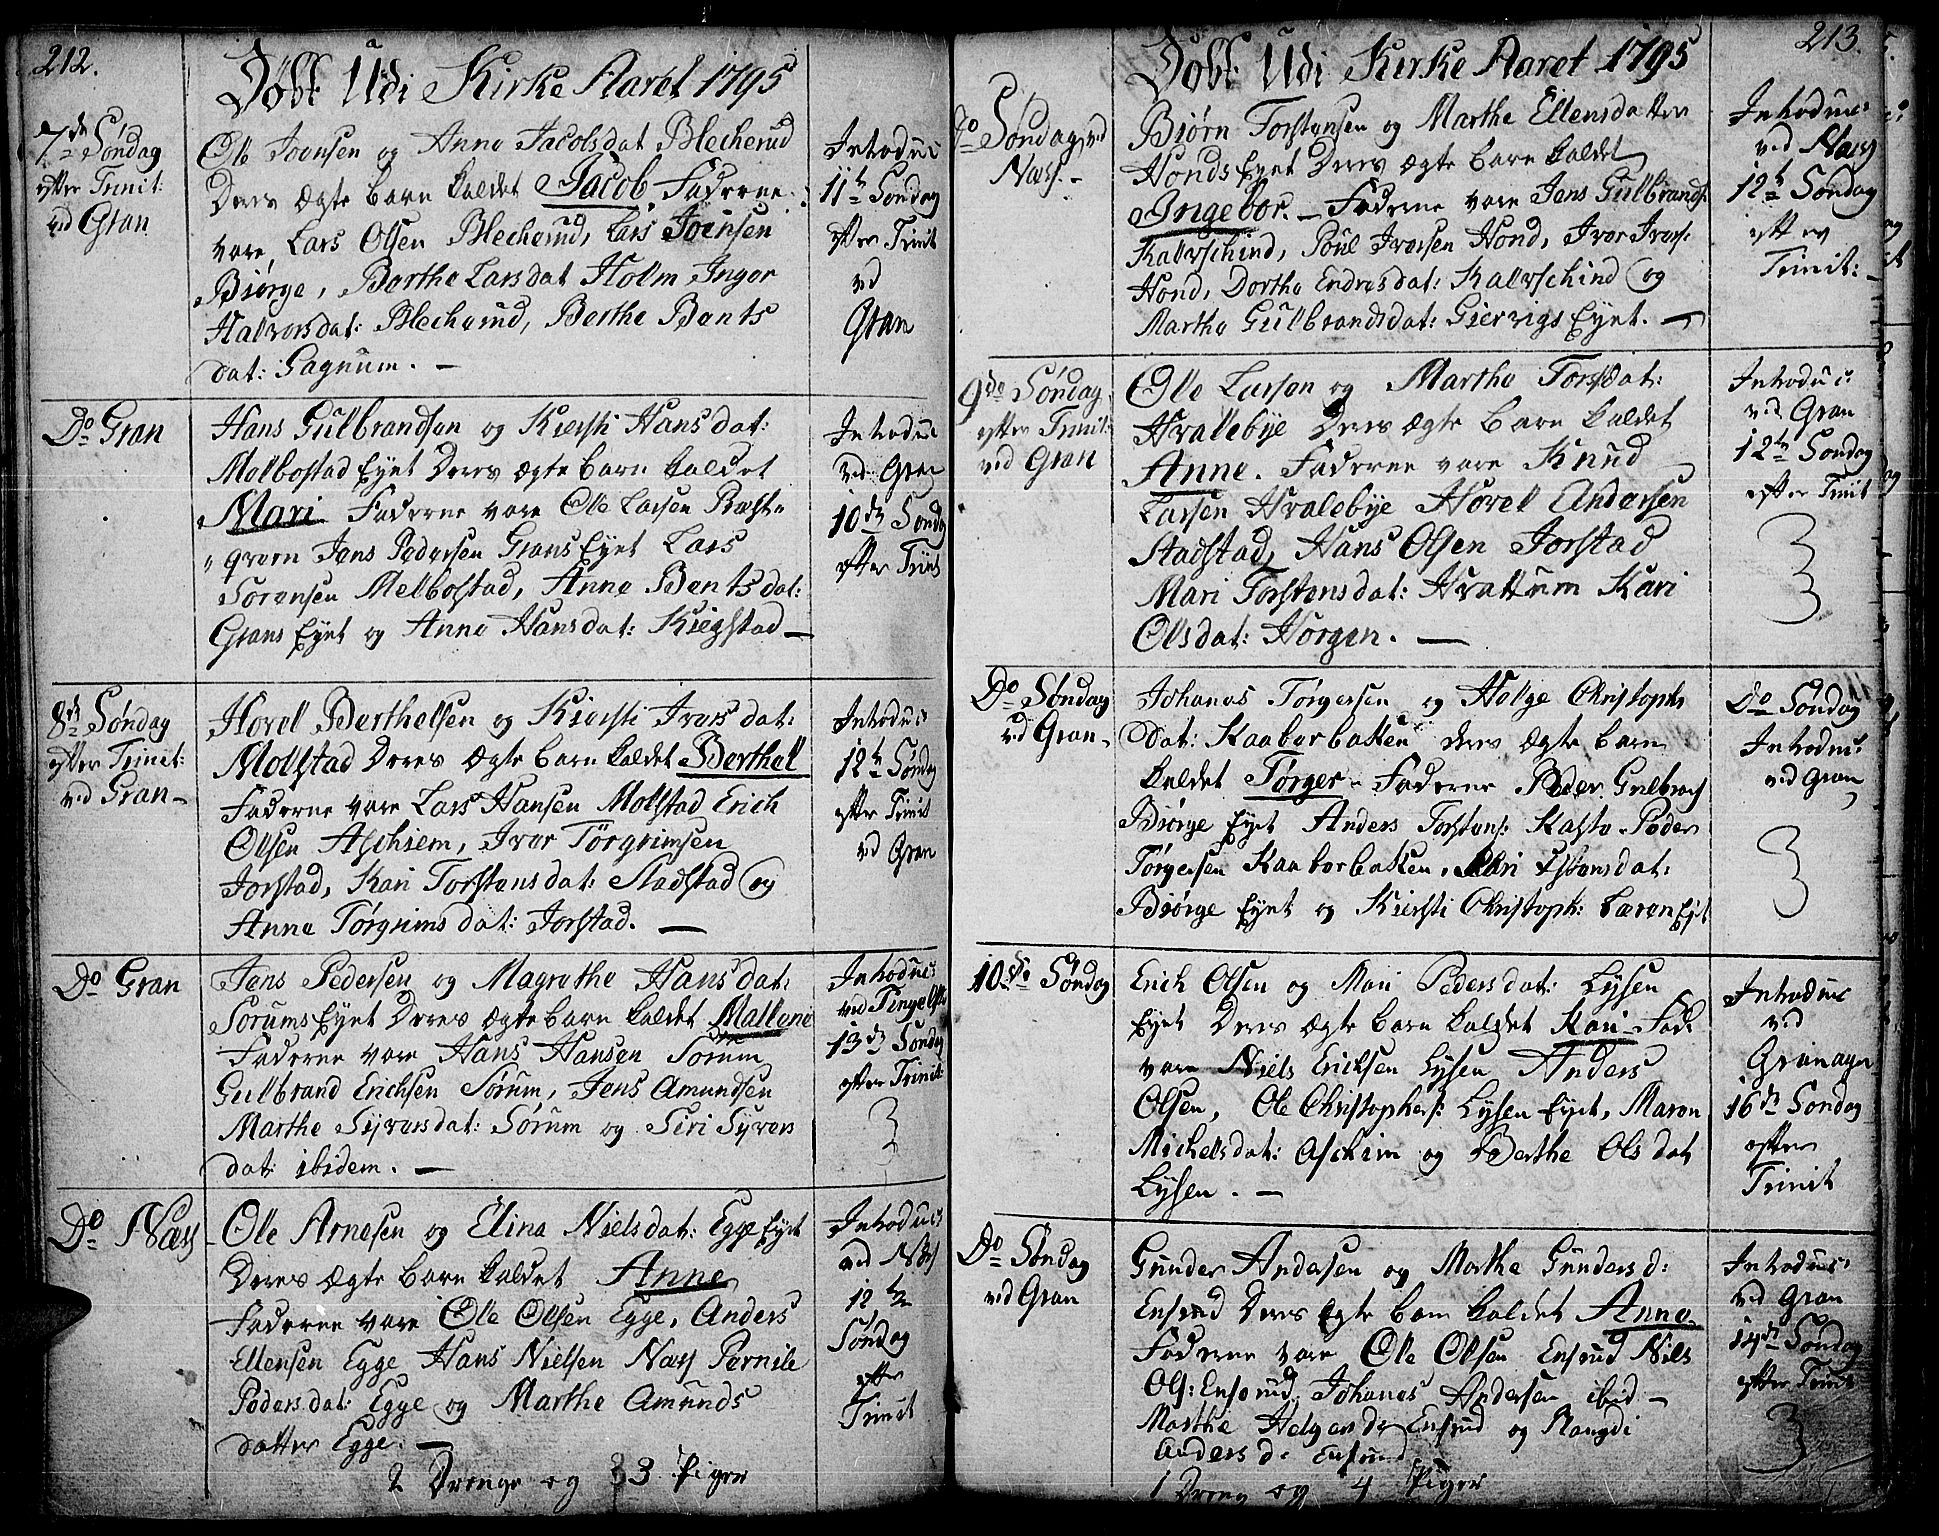 212.
Döbt Udi Kirke Aaret 1795
7de Søndag
efter Trinit:
ved Gran
Ole Joensen og Anne Jacobsdat Blecherud
Deres Ægte barn kaldet Jacob. Faderne
vare, Lars Olsen Blecherud, Lars Joensen
Biørge, Berthe Larsdat Holm Inger
Halvorsdat: Blecherud, Berthe Bents
dat: Gagnum. —
Introduc:
11te Søndag
efter Trinit
ved
Gran
Do Gran
Hans Gulbrandsen og Kiersti Hansdat:
Melbostad Eyet Deres ægte barn kaldet
Mari Faderne vare Ole Larsen Præste
qvern Jens Pedersen Grans Eyet Lars
Sørensen Melbostad, Anne Bentsdat:
Grans Eyet og Anne Hansdat: Kiegstad —
Introduc
ved Gran
10de Søndag
efter Trinit
8de Søndag
efter Trinit:
ved Gran —
Hovel Berthelsen og Kiersti Iversdat:
Molstad Deres Ægte barn kaldet Berthel
Faderne vare Lars Hansen Molstad Erich
Olsen Aschiem, Iver Törgrimsen
Jorstad, Kari Torstensdat: Stadstad og
Anne Törgrimsdat: Jorstad. —
Introduc:
12te Søndag
efter Trinit
ved Gran
Do Gran
Jens Pedersen og Magrethe Hansdat:
Sorums Eyet Deres ægte barn kaldet Mallene
Faderne vare Hans Hansen Sorum
Gulbrand Erichsen Sørum, Jens Amundsen
Marthe Syversdat: Sørum og Siri Syvers
dat: ibidem. —
Introduc:
ved Tingelst:
13de Søndag
efter Trinit:
3
Do Næss
Ole Arnesen og Elina Nielsdat: Egge Eyet
Deres Ægte barn kaldet Anne
Faderne vare Ole Olsen Egge, Anders
Ellensen Egge Hans Nielsen Næss Pernile
Pedersdat: Egge og Marthe Amunds
datter Egge. —
Introduc:
ved Næss
12te
Søndag
efter
Trinit
2 Drenge og 3 Piger
213.
Döbt Udi Kirke Aaret 1795
Do Søndag ved
Næss. —
Biørn Torstensen og Marthe Ellensdatter
Honds Eyet Deres Ægte barn kaldet
Ingebor. — Faderne vare Jens Gulbrands:
Kalvschind, Poul Iversen Hond, Iver Ivers:
Hond, Dorthe Endresdat: Kalvschind og
Marthe Gulbrandsdat: Giervigs Eyet. —
Introduc:
ved Næss
12te Søndag
efter
Trinit: —
9de Søndag
efter Trinit:
ved Gran
Ole Larsen og Marthe Torstdat:
Hvallebye Deres Ægte barn kaldet
Anne. Faderne vare Knud
Larsen Hvalebye Hovel Andersen
Stadstad, Hans Olsen Jorstad
Mari Torstensdat: Hvattum Kari
Olsdat: Horgen. —
Introduc:
ved Gran
12te Søndag
efter Trinit
3
Do Søndag
ved Gran —
Johanes Törgersen og Helge Christophs
dat: Kaaberbakken deres Ægte barn
kaldet Törger — Faderne Peder Gulbrands
Biørge Eyet Anders Torstens: Kasta Peder
Törgersen Kaaberbakken, Mari Estensdat:
Biørge Eyet og Kiersti Christoph: Læren Eyet
Do Søndag
Introduc:
ved Gran
3
10de Søndag
Erich Olsen og Mari Pedersdat: Lysen
Eyet Deres Ægte barn kaldet Kari — Fad:
vare Niels Ericksen Lysen Anders
Olsen, Ole Christophers: Lysen Eyet, Maren
Michelsdat: Aschim og Berthe Olsdat
Lysen. —
Introduc
ved
Granager
16de Søndag
efter
Trinit
Do Søndag
ved Gran
Gunder Andersen og Marthe Gundersd:
Ensrud Deres Ægte barn kaldet Anne
Faderne vare Ole Olsen Ensrud Niels
Ols: Ensrud, Johanes Andersen ibid —
Marthe Helgersd: Ensrud og Rangdi
Andersd: Ensrud
Introduc:
ved Gran
14de Søndag
efter Trinit
3
1 Dreng og 4 Piger